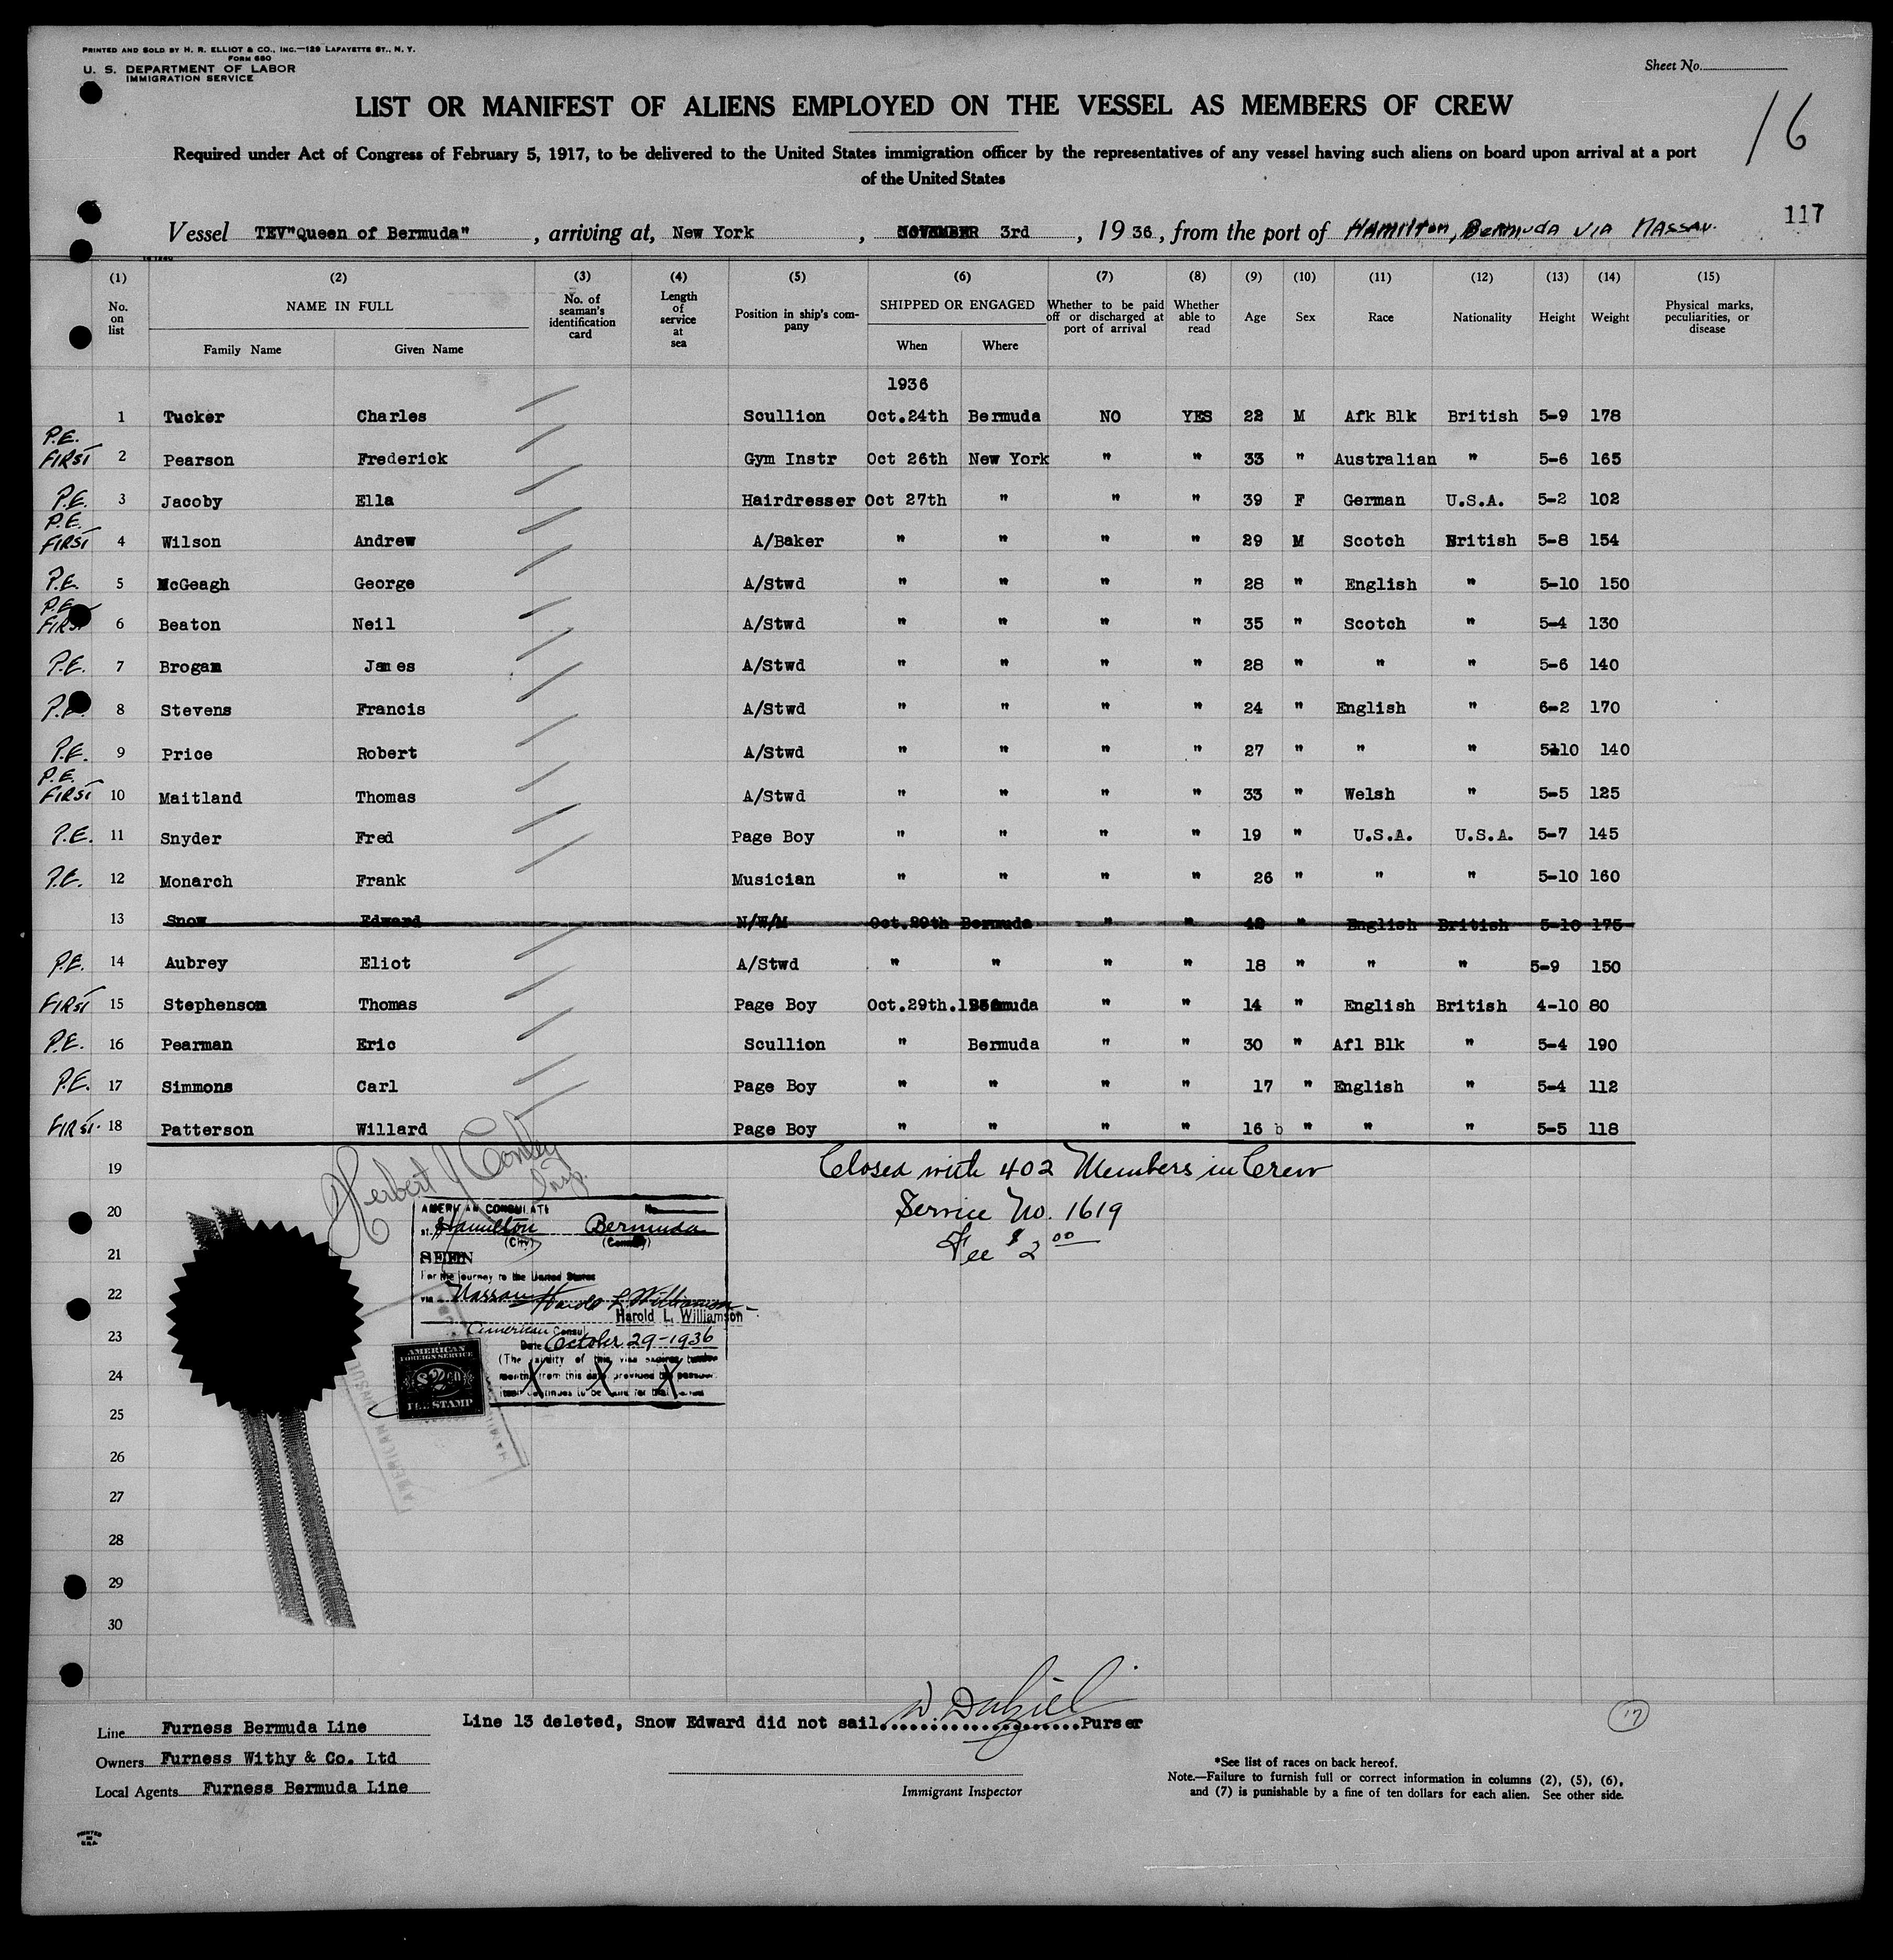 PRINTED AND SOLD BY H. R. ELLIOT & CO., INC.—129 LAFAYETTE ST., N. Y.
FORM 680
U. S. DEPARTMENT OF LABOR
IMMIGRATION SERVICE
Sheet No.
LIST OR MANIFEST OF ALIENS EMPLOYED ON THE VESSEL AS MEMBERS OF CREW
16
Required under Act of Congress of February 5, 1917, to be delivered to the United States immigration officer by the representatives of any vessel having such aliens on board upon arrival at a port
of the United States
117
Vessel TEV"Queen of Bermuda" , arriving at, New York , NOVEMBER 3rd , 19 36 , from the port of Hamilton, Bermuda via Nassau.
(1) (2) (3) (4) (5) (6) (7) (8) (9) (10) (11) (12) (13) (14) (15)
No. on list NAME IN FULL No. of seaman's identification card Length of service at sea Position in ship's company SHIPPED OR ENGAGED Whether to be paid off or discharged at port of arrival Whether able to read Age Sex Race Nationality Height Weight Physical marks, peculiarities, or disease
Family Name Given Name When Where
1936
1 Tucker Charles Scullion Oct.24th Bermuda NO YES 22 M Afk Blk British 5-9 178
P.E. FIRST 2 Pearson Frederick Gym Instr Oct 26th New York " " 33 " Australian " 5-6 165
P.E. 3 Jacoby Ella Hairdresser Oct 27th " " " 39 F German U.S.A. 5-2 102
P.E. FIRST 4 Wilson Andrew A/Baker " " " " 29 M Scotch British 5-8 154
P.E. 5 McGeagh George A/Stwd " " " " 28 " English " 5-10 150
P.E. FIRST 6 Beaton Neil A/Stwd " " " " 35 " Scotch " 5-4 130
P.E. 7 Brogan James A/Stwd " " " " 28 " " " 5-6 140
P.E. 8 Stevens Francis A/Stwd " " " " 24 " English " 6-2 170
P.E. 9 Price Robert A/Stwd " " " " 27 " " " 5-10 140
P.E. FIRST 10 Maitland Thomas A/Stwd " " " " 33 " Welsh " 5-5 125
P.E. 11 Snyder Fred Page Boy " " " " 19 " U.S.A. U.S.A. 5-7 145
P.E. 12 Monarch Frank Musician " " " " 26 " " " 5-10 160
13 Snow Edward N/W/M Oct.29th Bermuda " " 42 " English British 5-10 175
P.E. 14 Aubrey Eliot A/Stwd " " " " 18 " " " 5-9 150
FIRST 15 Stephenson Thomas Page Boy Oct.29th.1936 Bermuda " " 14 " English British 4-10 80
P.E. 16 Pearman Eric Scullion " Bermuda " " 30 " Afl Blk " 5-4 190
P.E. 17 Simmons Carl Page Boy " " " " 17 " English " 5-4 112
FIRST. 18 Patterson Willard Page Boy " " " " 16 b " " " 5-5 118
19 Closed with 402 Members in Crew
Herbert J Conley
Insp.
20 Service No. 1619
21 Fee $2 00
AMERICAN CONSULATE No.
at Hamilton Bermuda
(City) (Country)
SEEN
For the journey to the United States
22 via Nassau Harold L. Williamson
Harold L. Williamson
23 American Consul
Date October 29-1936
(The validity of this visa expires twelve
24 months from this date, provided the passport
itself continues to be valid for that period
AMERICAN
FOREIGN SERVICE
$2.00
FEE STAMP
AMERICAN CONSUL
25
26
27
28
29
30
Line Furness Bermuda Line
Line 13 deleted, Snow Edward did not sail W. Dalziel Purser
17
Owners Furness Withy & Co. Ltd
Local Agents Furness Bermuda Line
Immigrant Inspector
*See list of races on back hereof.
Note.—Failure to furnish full or correct information in columns (2), (5), (6),
and (7) is punishable by a fine of ten dollars for each alien. See other side.
PRINTED
IN
U.S.A.